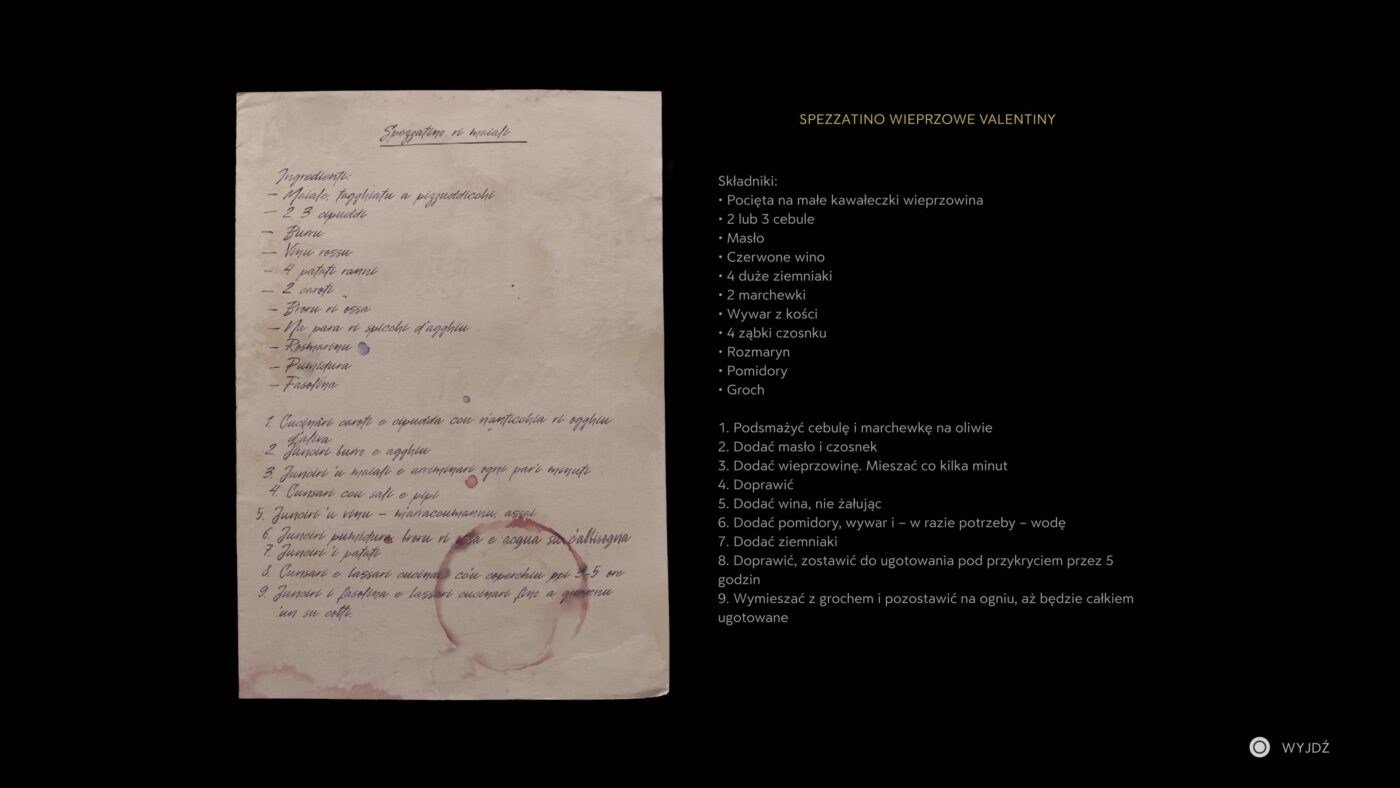 Spezzatino ri maiali
Ingredienti:
– Maiale, tagghiatu a pizzuddicchi
– 2, 3 cipuddi
– Burru
– Vinu russu
– 4 patati ranni
– 2 caroti
– Broru ri ossa
– Na para ri spicchi d'agghiu
– Rosmarinu
– Pumidura
– Fasolina
1. Cucinàri caroti e cipudda cou n'anticchia ri ogghiu
d'aliva
2. Junciri burro e agghiu
3. Junciri 'u maiali e arriminari ogni par'i minuti
4. Cunsari cou sali e pipi
5. Junciri 'u vinu – m'arraccumannu, assai
6. Junciri pumidura broru ri ossa e acqua su c'àbbisogna
7. Junciri 'i patati
8. Cunsari e lassari cucinari c'ou coperchiu ppi 3-5 ore
9. Junciri i fasolina e lassari cucinari fino a quannu
'un su cotti.
SPEZZATINO WIEPRZOWE VALENTINY
Składniki:
• Pocięta na małe kawałeczki wieprzowina
• 2 lub 3 cebule
• Masło
• Czerwone wino
• 4 duże ziemniaki
• 2 marchewki
• Wywar z kości
• 4 ząbki czosnku
• Rozmaryn
• Pomidory
• Groch
1. Podsmażyć cebulę i marchewkę na oliwie
2. Dodać masło i czosnek
3. Dodać wieprzowinę. Mieszać co kilka minut
4. Doprawić
5. Dodać wina, nie żałując
6. Dodać pomidory, wywar i – w razie potrzeby – wodę
7. Dodać ziemniaki
8. Doprawić, zostawić do ugotowania pod przykryciem przez 5
godzin
9. Wymieszać z grochem i pozostawić na ogniu, aż będzie całkiem
ugotowane
WYJDŹ